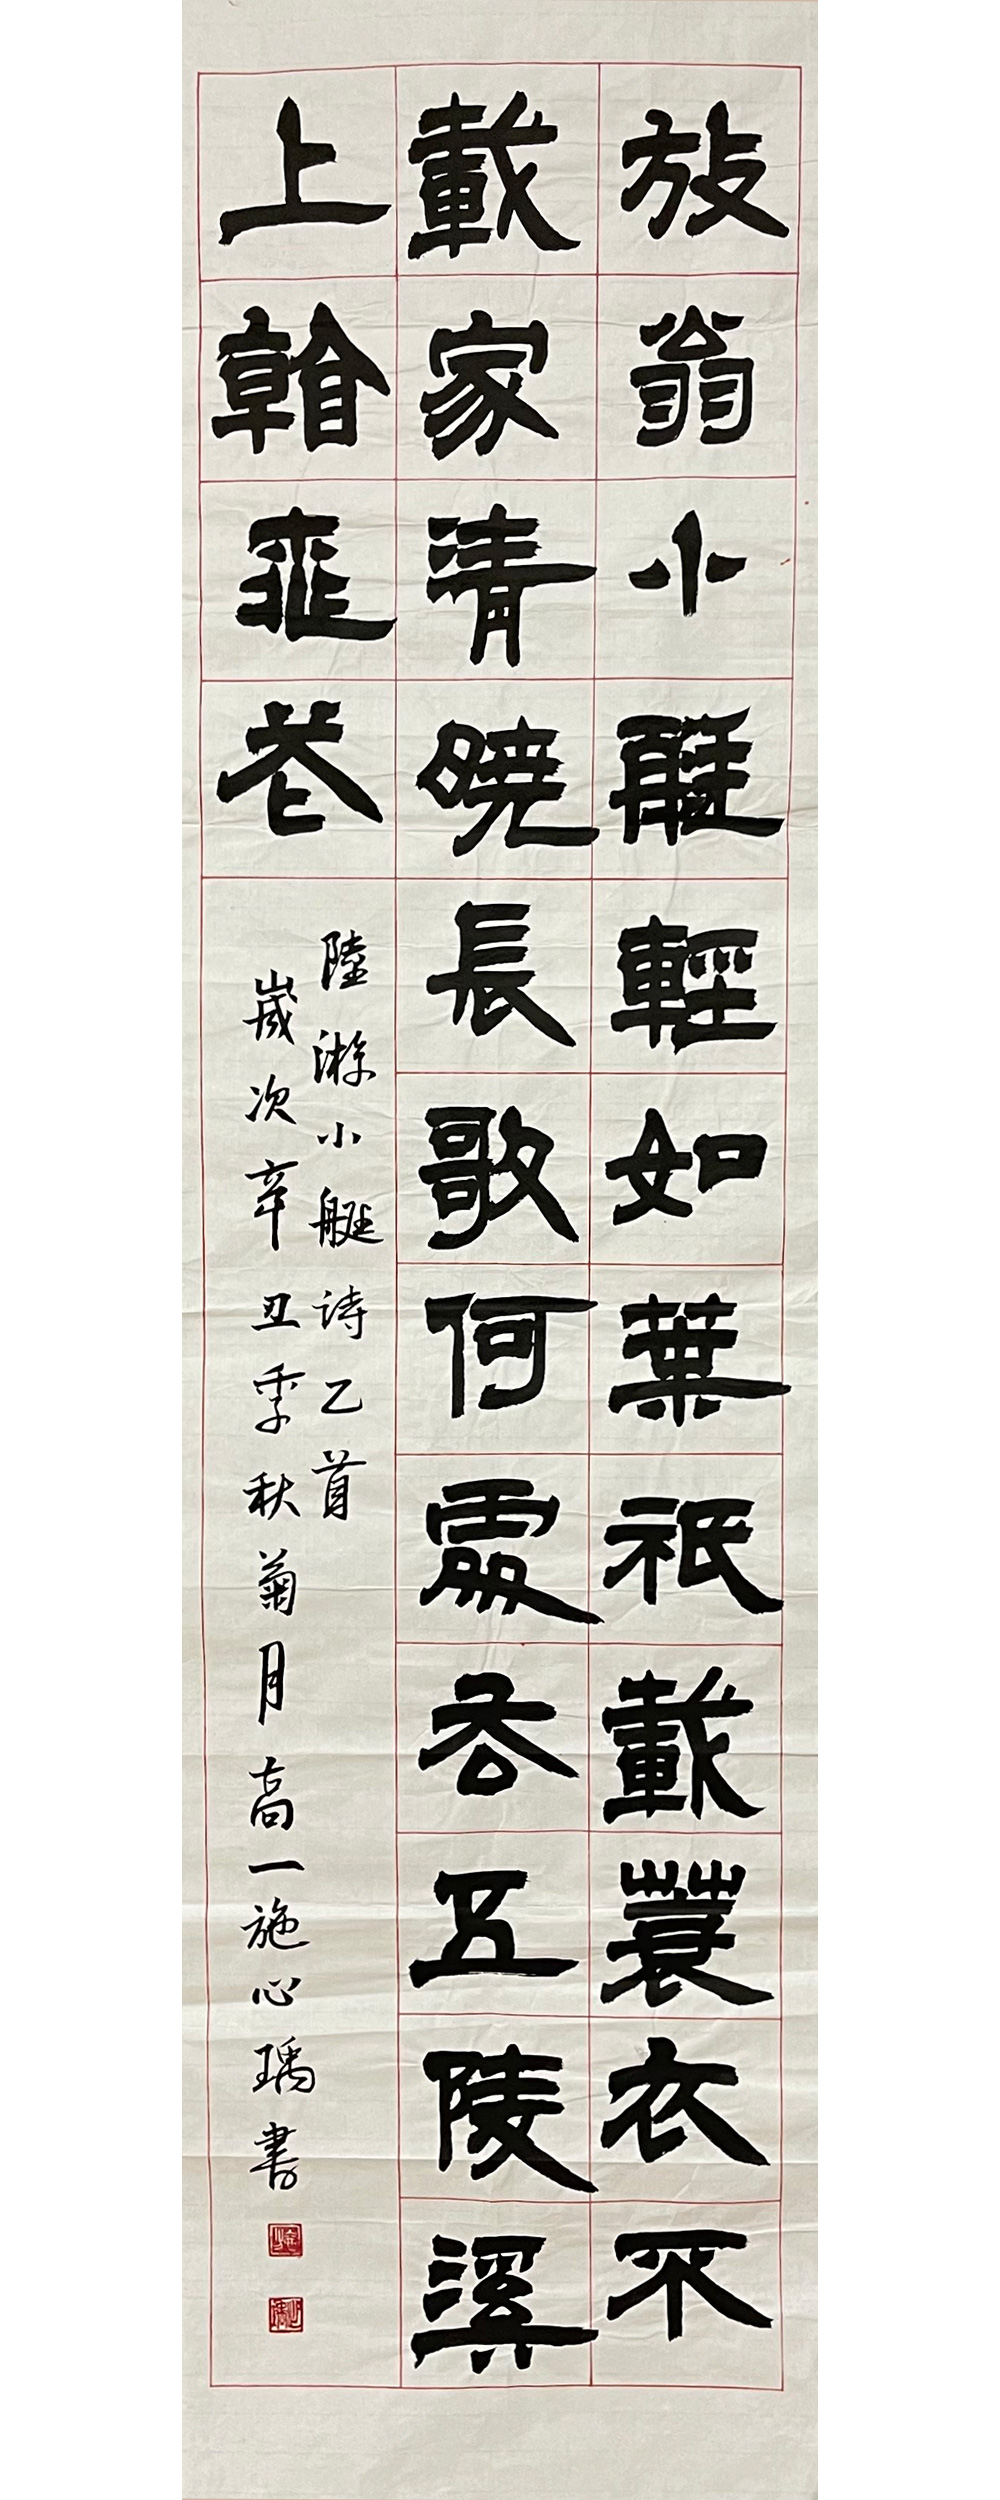 放翁小艇輕如葉祇載蓑衣不
載家清曉長歌何處去五陵溪
上看桃花
陸游小艇詩乙首
歲次辛丑季秋菊月高一施心瑀書